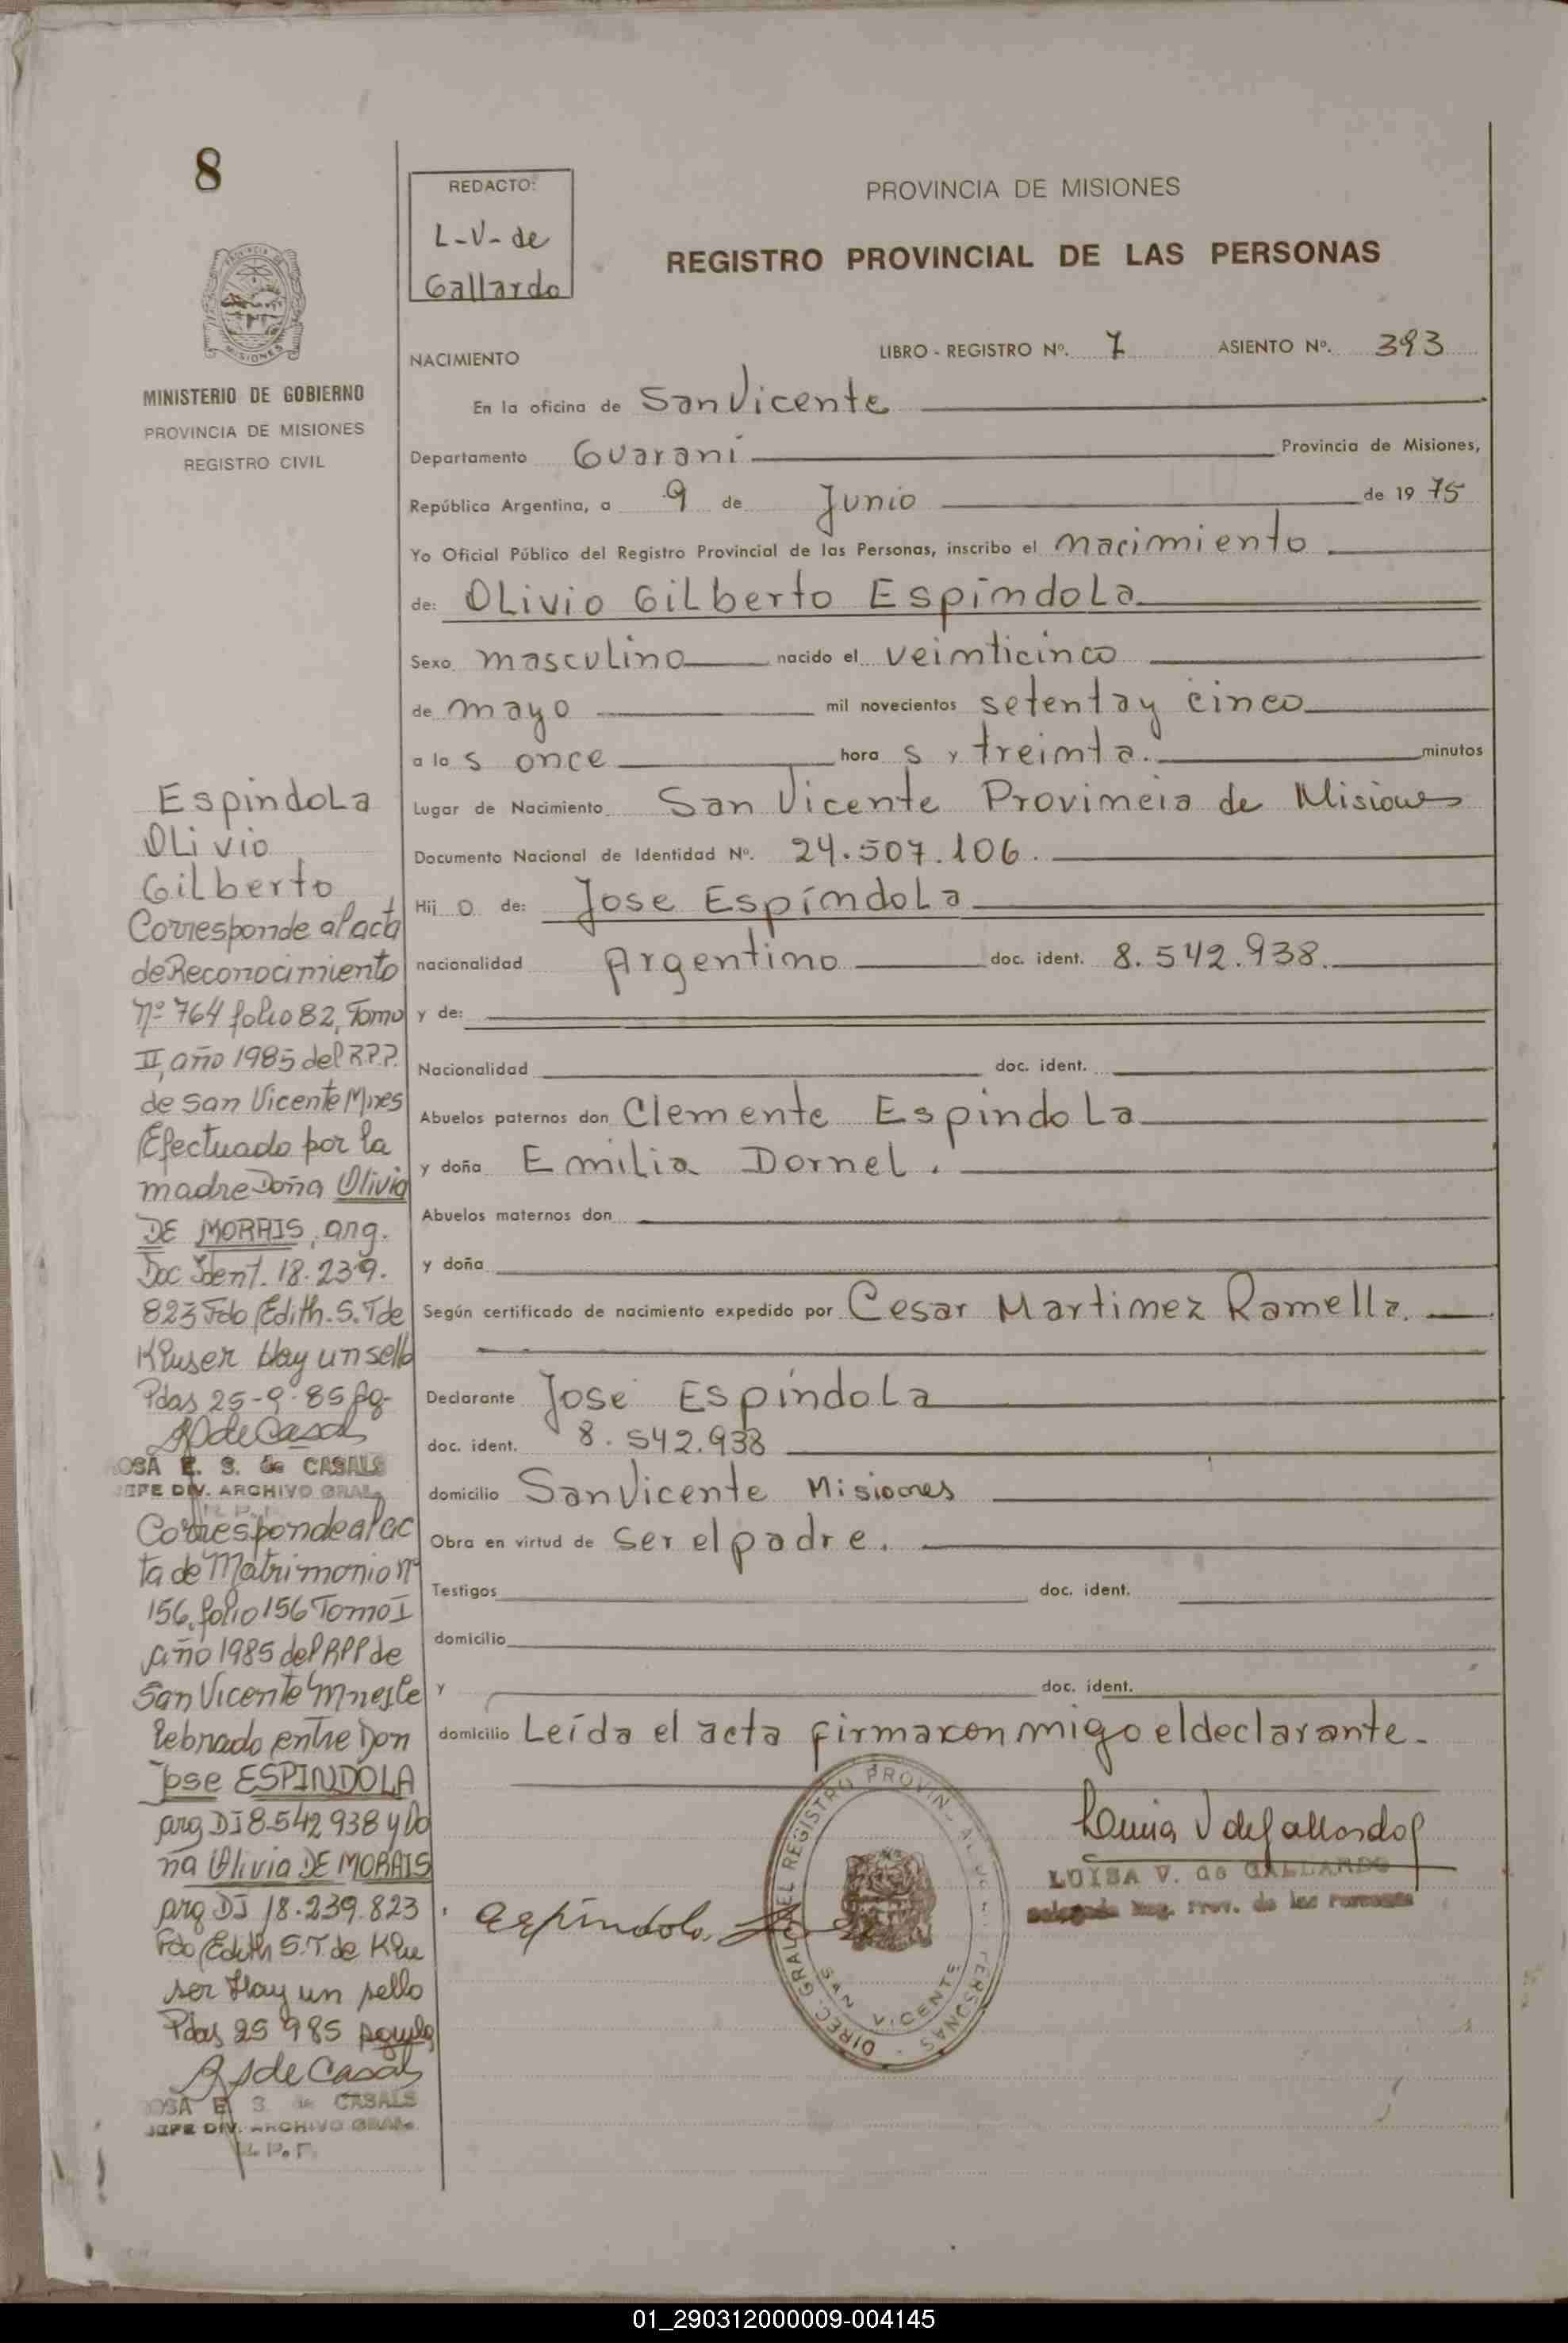 8
PROVINCIA DE MISIONES
REGISTRO PROVINCIAL DE LAS PERSONAS
REDACTO:
L-V-de
Gallardo
MISIONES
MINISTERIO DE GOBIERNO
PROVINCIA DE MISIONES
REGISTRO CIVIL
NACIMIENTO LIBRO - REGISTRO Nº. 7 ASIENTO Nº. 393
En la oficina de San Vicente
Departamento Guaraní Provincia de Misiones,
República Argentina, a 9 de Junio de 1975
Yo Oficial Público del Registro Provincial de las Personas, inscribo el nacimiento
de: Olivio Gilberto Espíndola
Sexo masculino nacido el veinticinco
de mayo mil novecientos setenta y cinco
a las once horas y treinta. minutos
Lugar de Nacimiento San Vicente Provincia de Misiones
Documento Nacional de Identidad Nº. 24.507.106.
Hijo de: Jose Espíndola
nacionalidad Argentino doc. ident. 8.542.938.
y de:
Nacionalidad doc. ident.
Abuelos paternos don Clemente Espindola
y doña Emilia Dornel.
Abuelos maternos don
y doña
Según certificado de nacimiento expedido por Cesar Martinez Ramella.
Declarante Jose Espíndola
doc. ident. 8.542.938
domicilio San Vicente Misiones
Obra en virtud de ser el padre.
Testigos doc. ident.
domicilio
y doc. ident.
domicilio Leída el acta firma con migo el declarante.
Espindola
Olivio
Gilberto
Corresponde al acta
de Reconocimiento
nº 764 folio 82, Tomo
II, año 1985 del R.P.P.
de San Vicente Mnes
Efectuado por la
madre Doña Olivia
DE MORAIS, arg.
Doc Ident. 18.239.
823 Fdo Edith.S.T de
Kluser Hay un sello
Pdas 25-9-85
ROSA E. S. de CASALS
JEFE DIV. ARCHIVO GRAL.
R.P.P.
Corresponde al ac
ta de Matrimonio nº
156, folio 156 Tomo I
año 1985 del RPP de
San Vicente Mnes Ce
lebrado entre Don
Jose ESPINDOLA
arg DI 8.542 938 y Do
ña Olivia DE MORAIS
arg DI 18.239.823
Fdo Edith S.T. de Klu
ser Hay un sello
Pdas 25 9 85
ROSA E. S. de CASALS
JEFE DIV. ARCHIVO GRAL.
R.P.P.
Luisa V de Gallardo
LUISA V. de GALLARDO
Delegada Reg. Prov. de las Personas
Espindola Jose
DIREC. GRAL. DEL REGISTRO PROVINCIAL DE LAS PERSONAS
SAN VICENTE
01_290312000009-004145